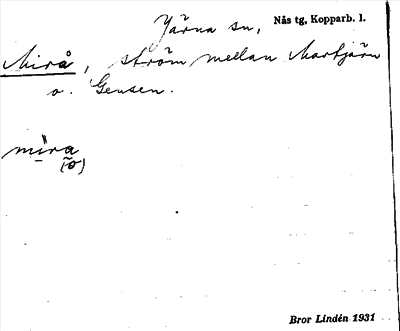 Järna sn, Nås tg, Kopparb. l.
Mirå, ström mellan Martjärn
o. Gensen.
mira
(o)
Bror Lindén 1931